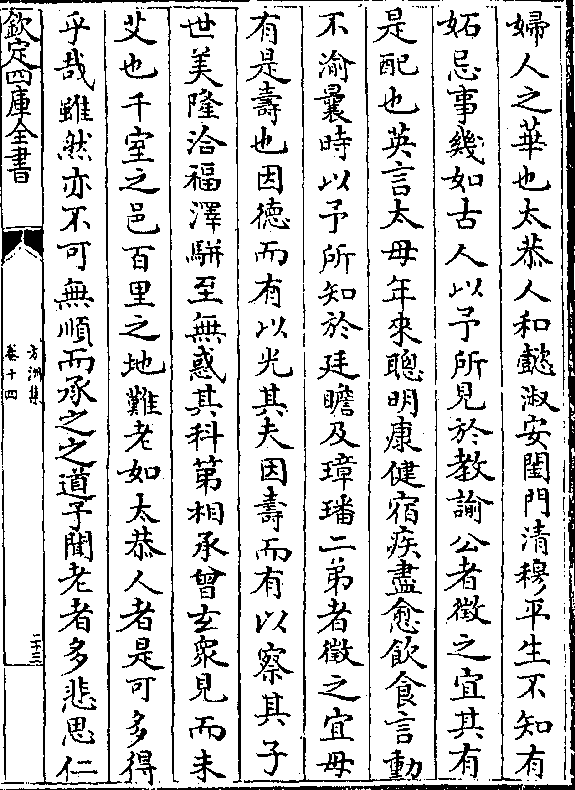 婦人之華也太恭人和懿淑安閨門清穆平生不知有
妬忌事幾如古人以予所見於教諭公者徵之宜其有
是配也英言太母年來聰明康健宿疾盡愈飲食言動
不渝曩時以予所知於廷瞻及璋璠二弟者徵之宜母
有是壽也因德而有以光其夫因壽而有以察其子
世美隆洽福澤駢至無惑其科第相承曾玄衆見而未
艾也千室之邑百里之地難老如太恭人者是可多得
乎哉雖然亦不可無順而承之之道予聞老者多悲思仁
欽定四庫全書
方洲集
卷十四
二十三